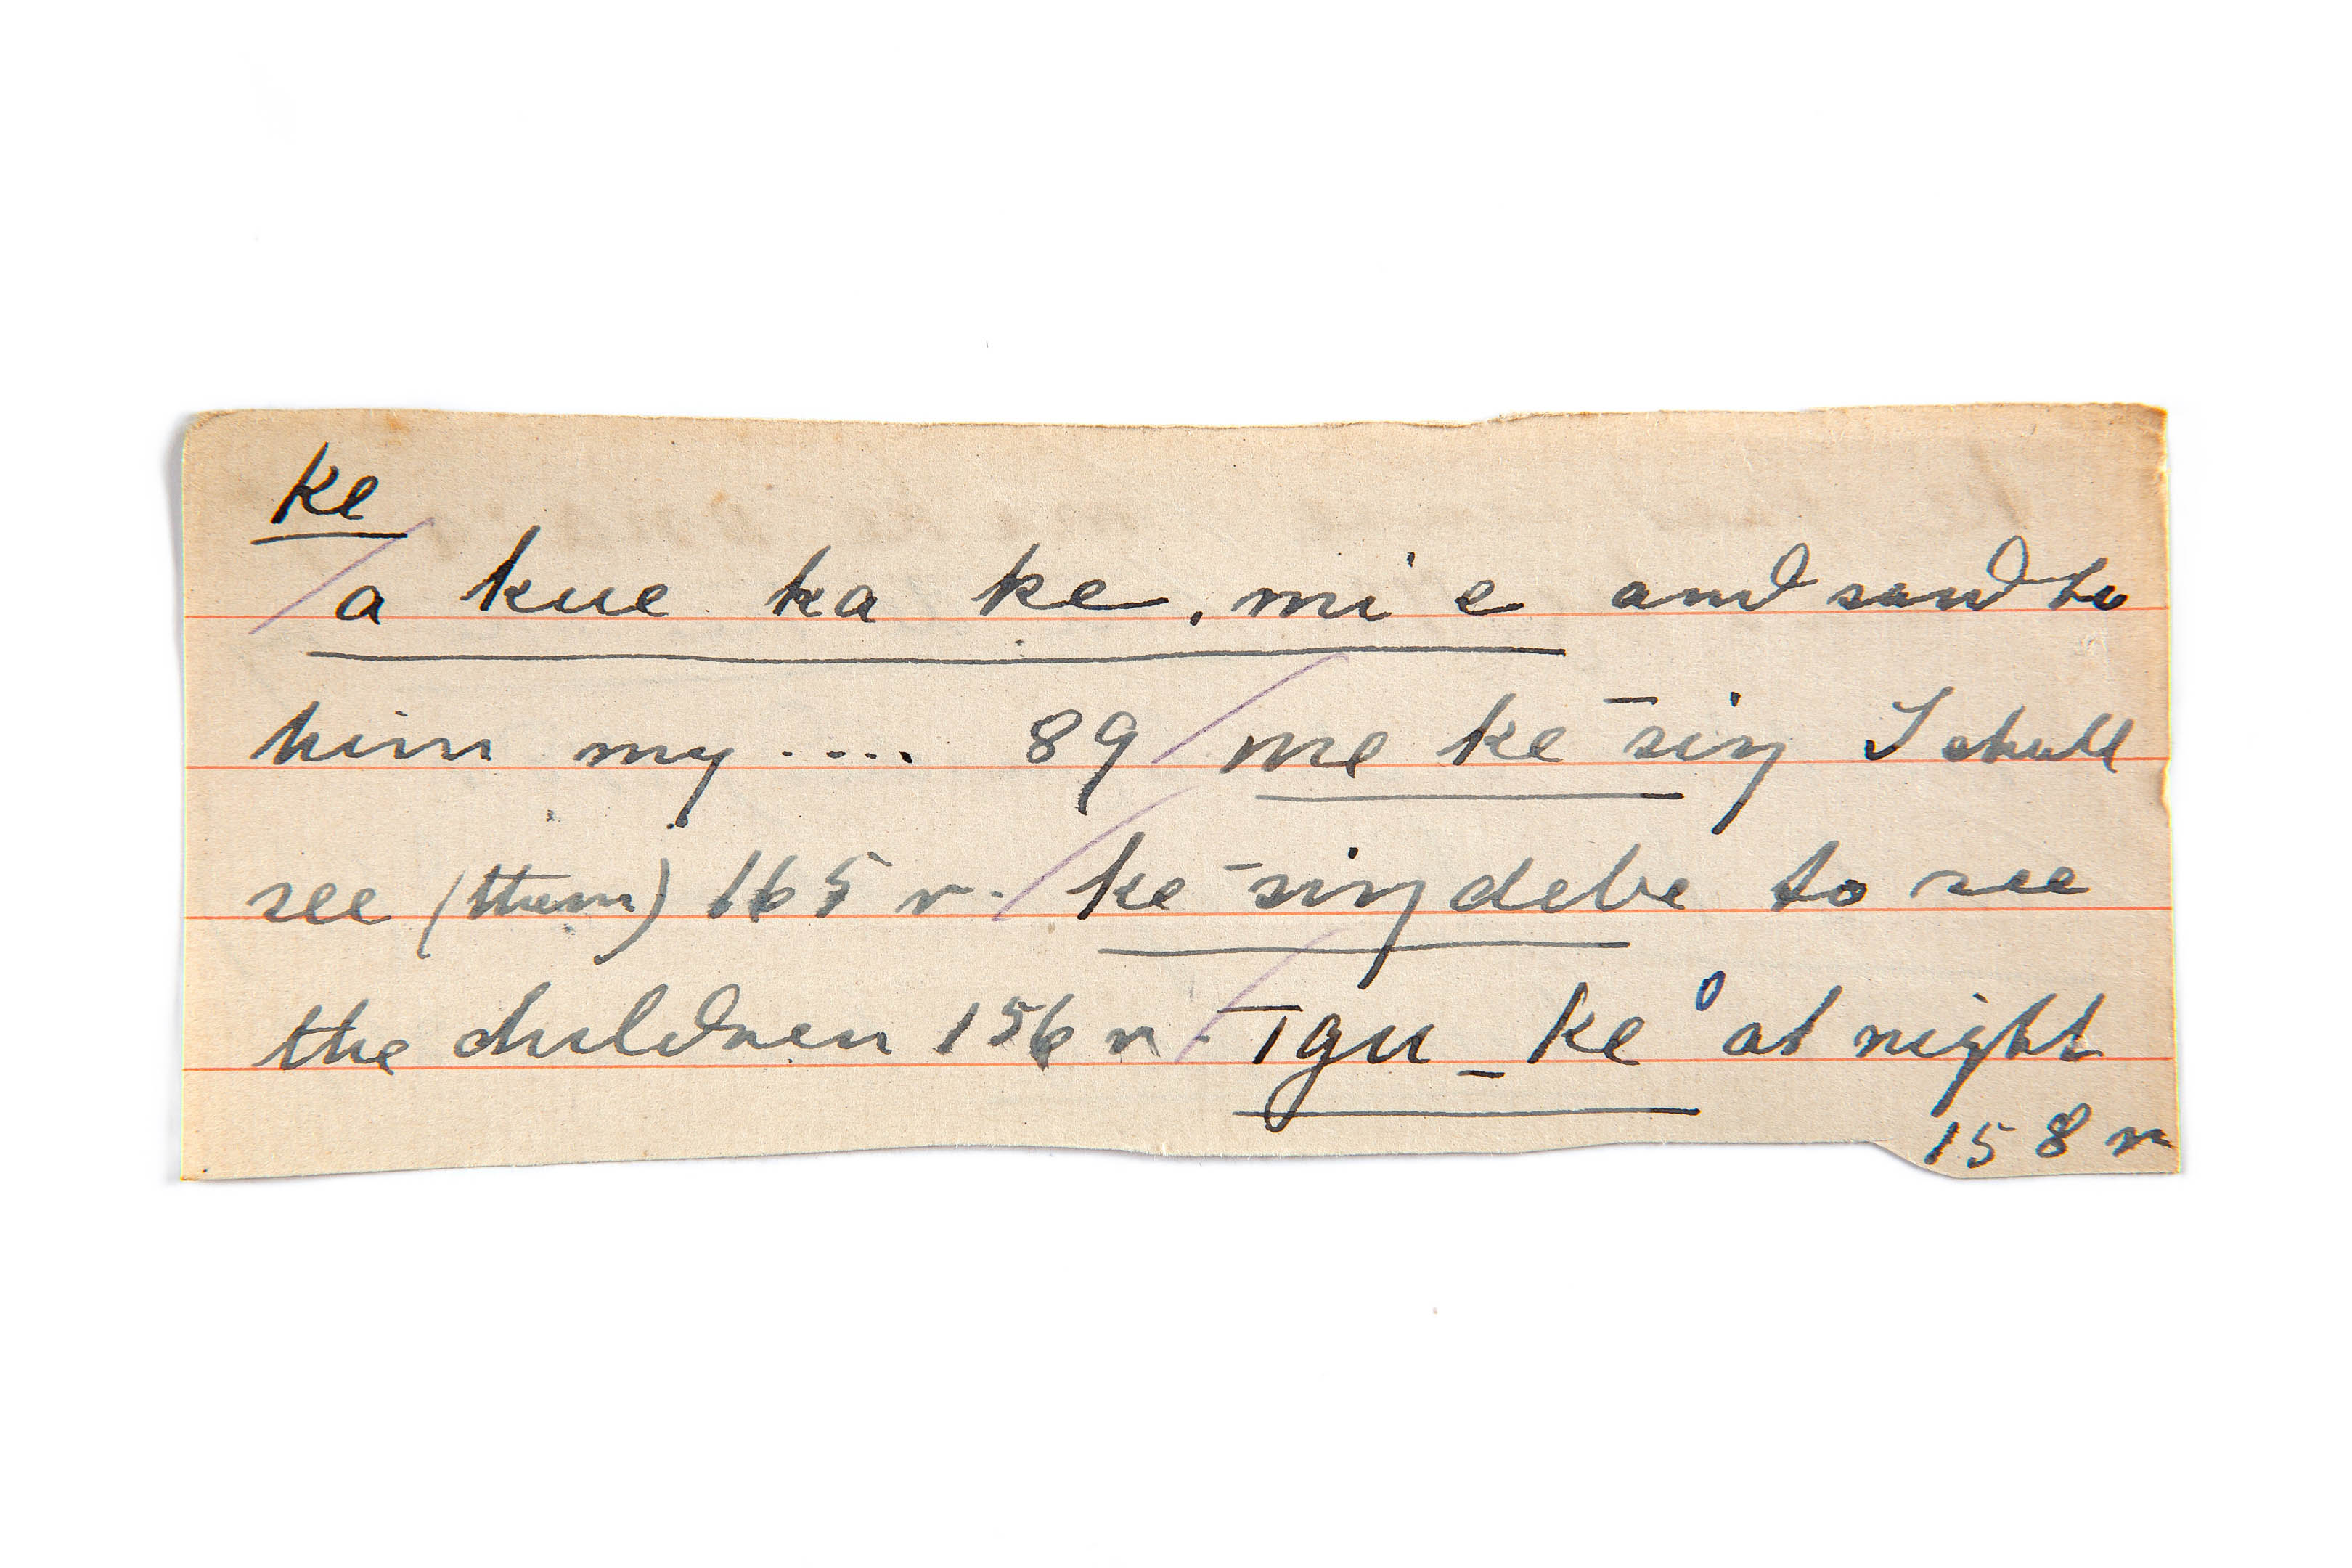 ke
/ a kue ka ke. mi e and said to
him my ..... 89 / me ke ¯siŋ I shall
see (them) 165 r. / ke ¯siŋ debe to see
the children 156 r / ¯ǀgu _ ke⁰ at night
158 r